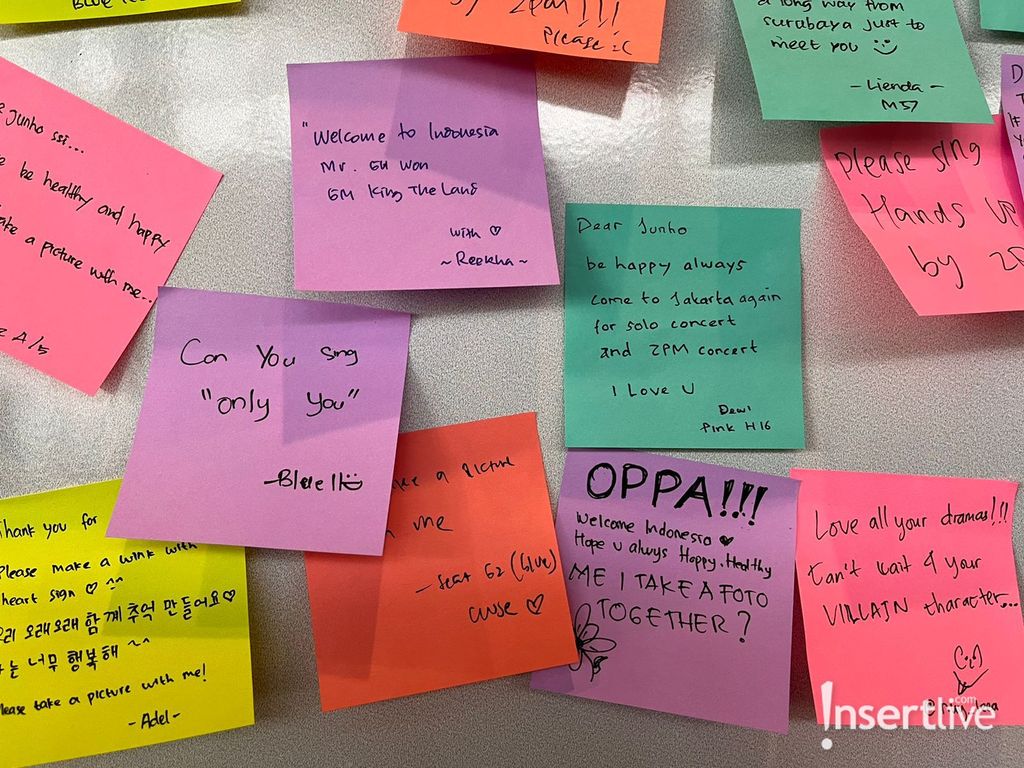 BLUE
by 2pm!!!
Please :C
a long way from
surabaya just to
meet you
- Lienda -
M57
Junho ssi...
be healthy and happy
take a picture with me...
A/5
"Welcome to Indonesia
Mr. Gu Won
GM King The Land
with ♡
~ Reekha ~
Please sing
Hands UP
by 2P
Dear Junho
be happy always
come to Jakarta again
for solo concert
and 2PM concert
I Love U
Dewi
Pink H16
Can You sing
"only You"
-Blue 11
ake a picture
me
- seat G2 (blue)
♡
Thank you for
Please make a wink with
heart sign ♡ ^^
리 오래오래 함께 추억 만들어요♡
는 너무 행복해 ~^
Please take a picture with me!
- Adel -
OPPA!!!
Welcome Indonesia ♥
Hope u always Happy, Healthy
ME I TAKE A FOTO
TOGETHER?
Love all your dramas!!!
Can't wait 4 your
VILLAIN character...
Insertlive
.com